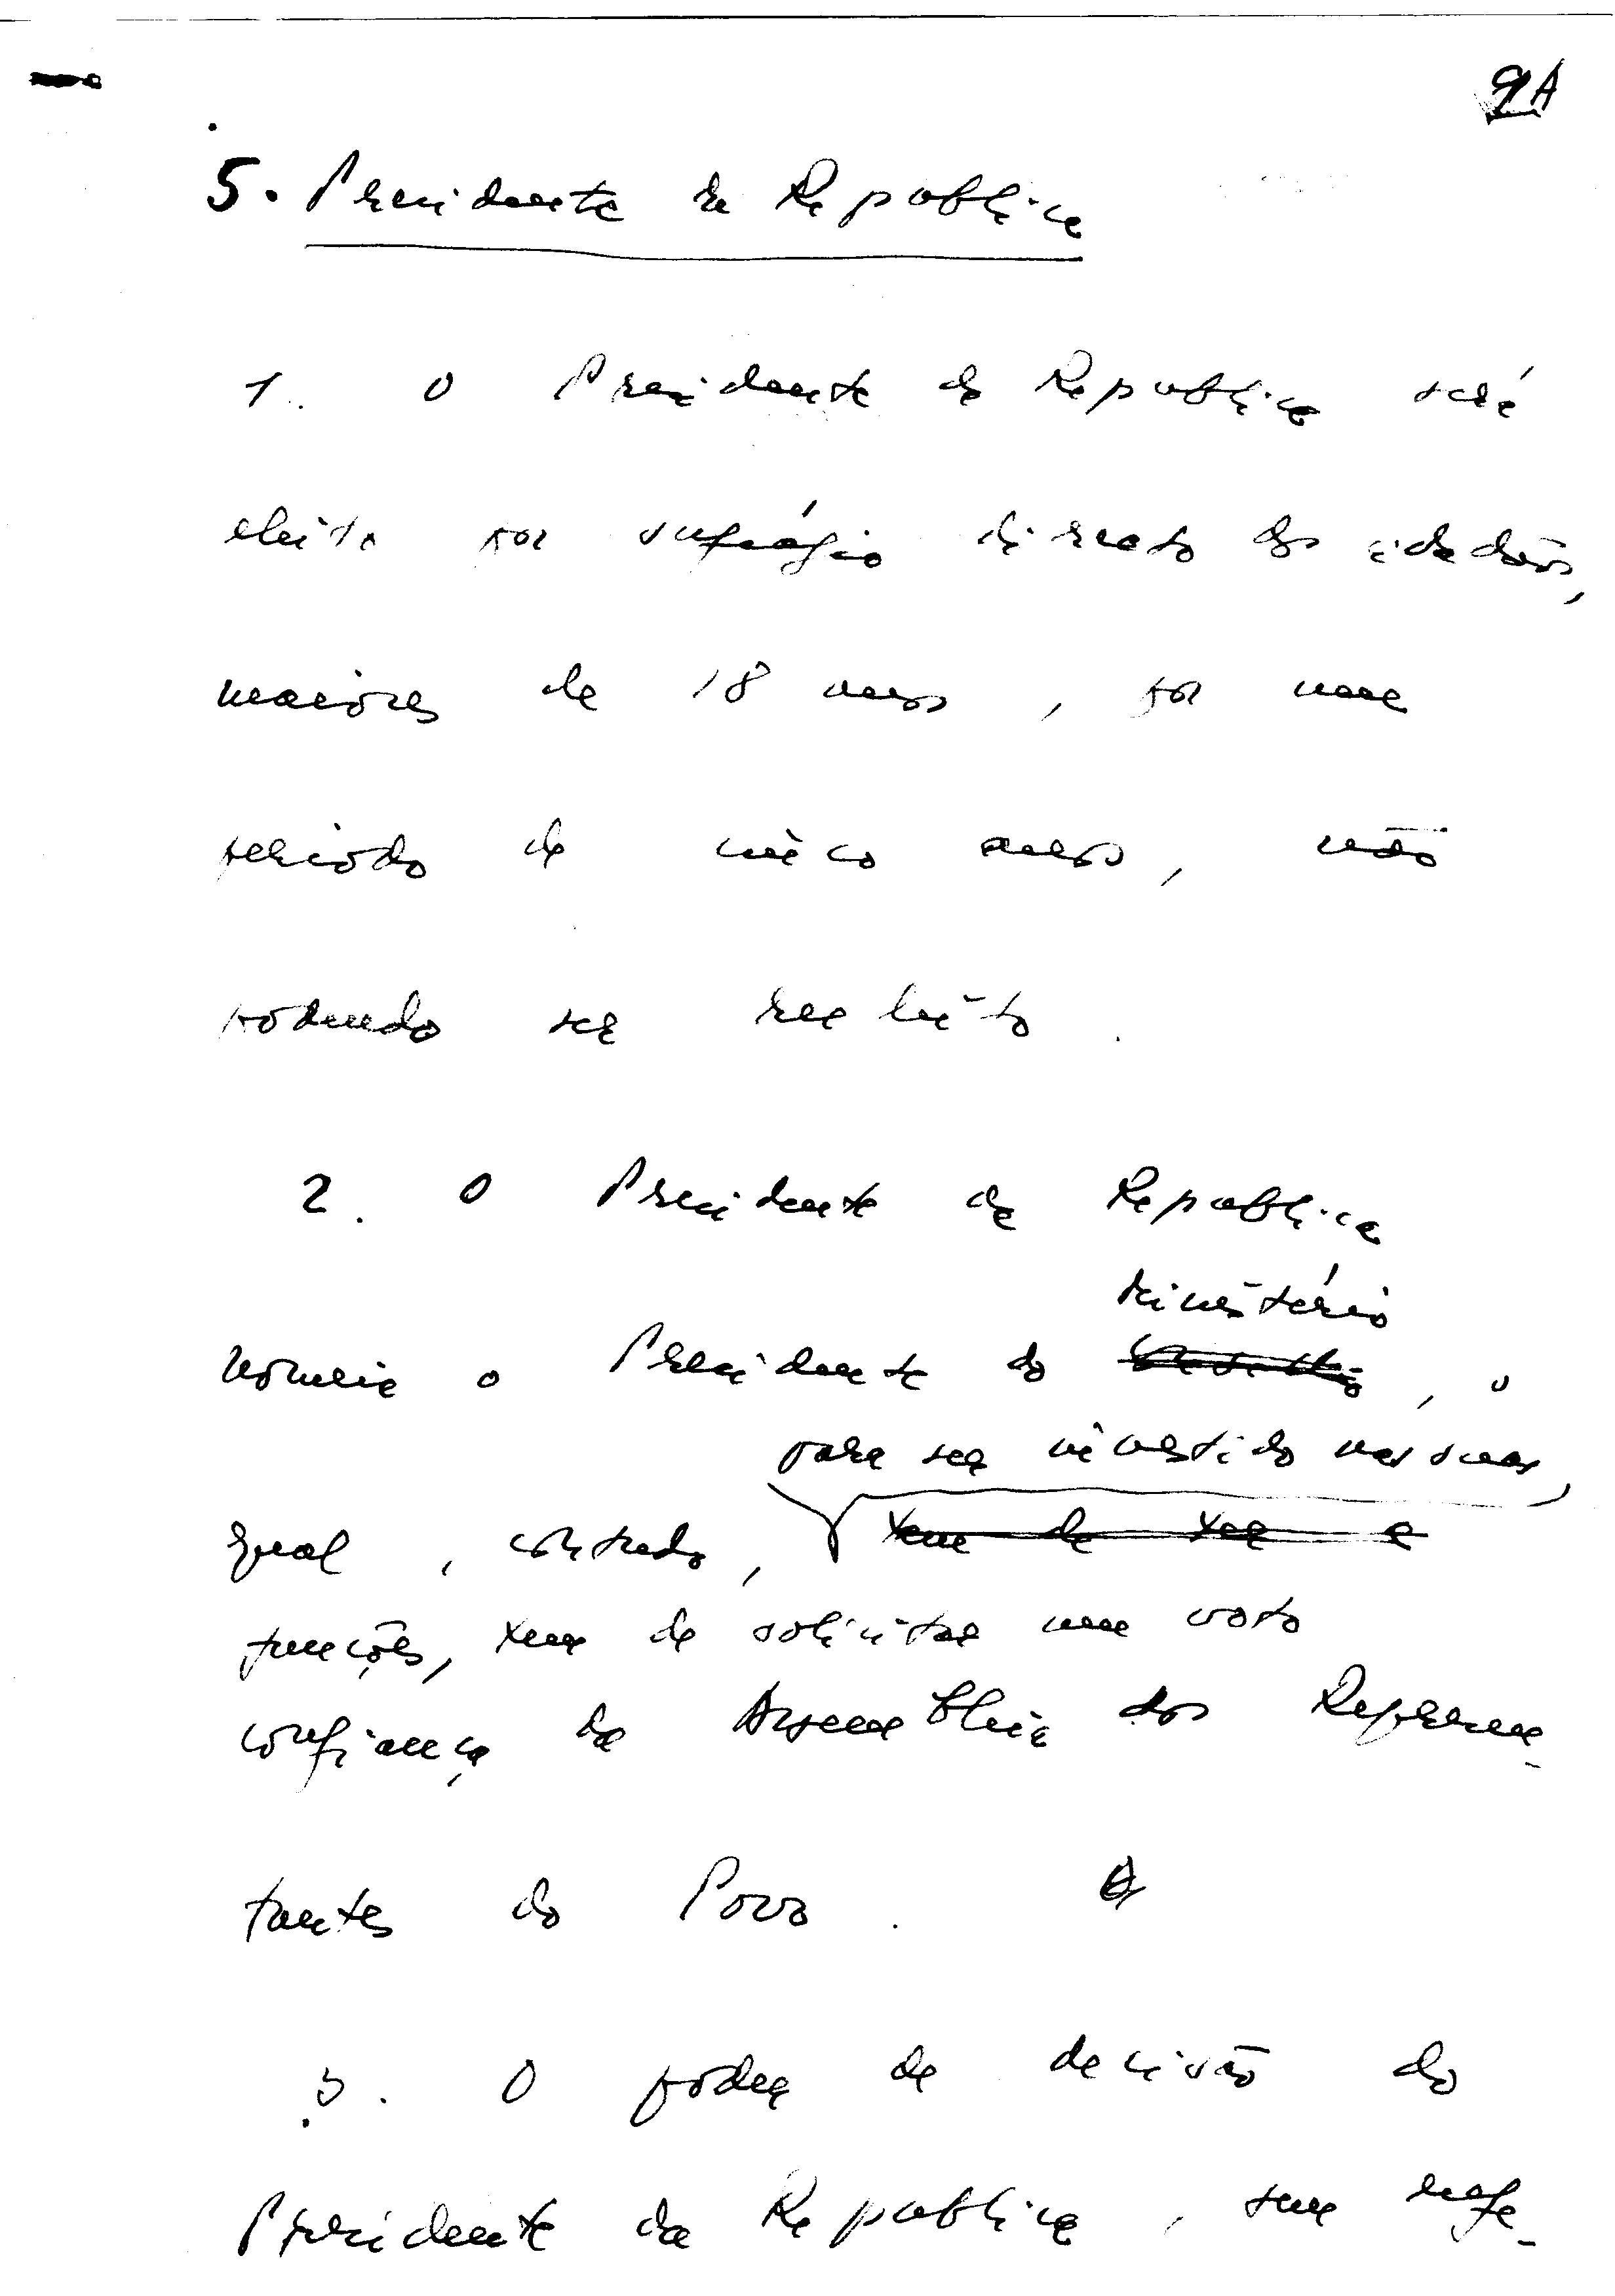 9A
5. Presidente da Republica
1. O Presidente da Republica será
eleito por sufrágio directo dos cidadãos,
maiores de 18 anos, por um
periodo de cinco anos, não
podendo ser reeleito.
2. O Presidente da Republica
Ministério
nomeia o Presidente do , o
para ser investido nas suas
qual, contudo, tem de ser a
funções, tem de solicitar um voto
confiança da Assembleia dos Represen-
tantes do Povo.
3. O poder de decisão do
Presidente da Republica, sem refe-